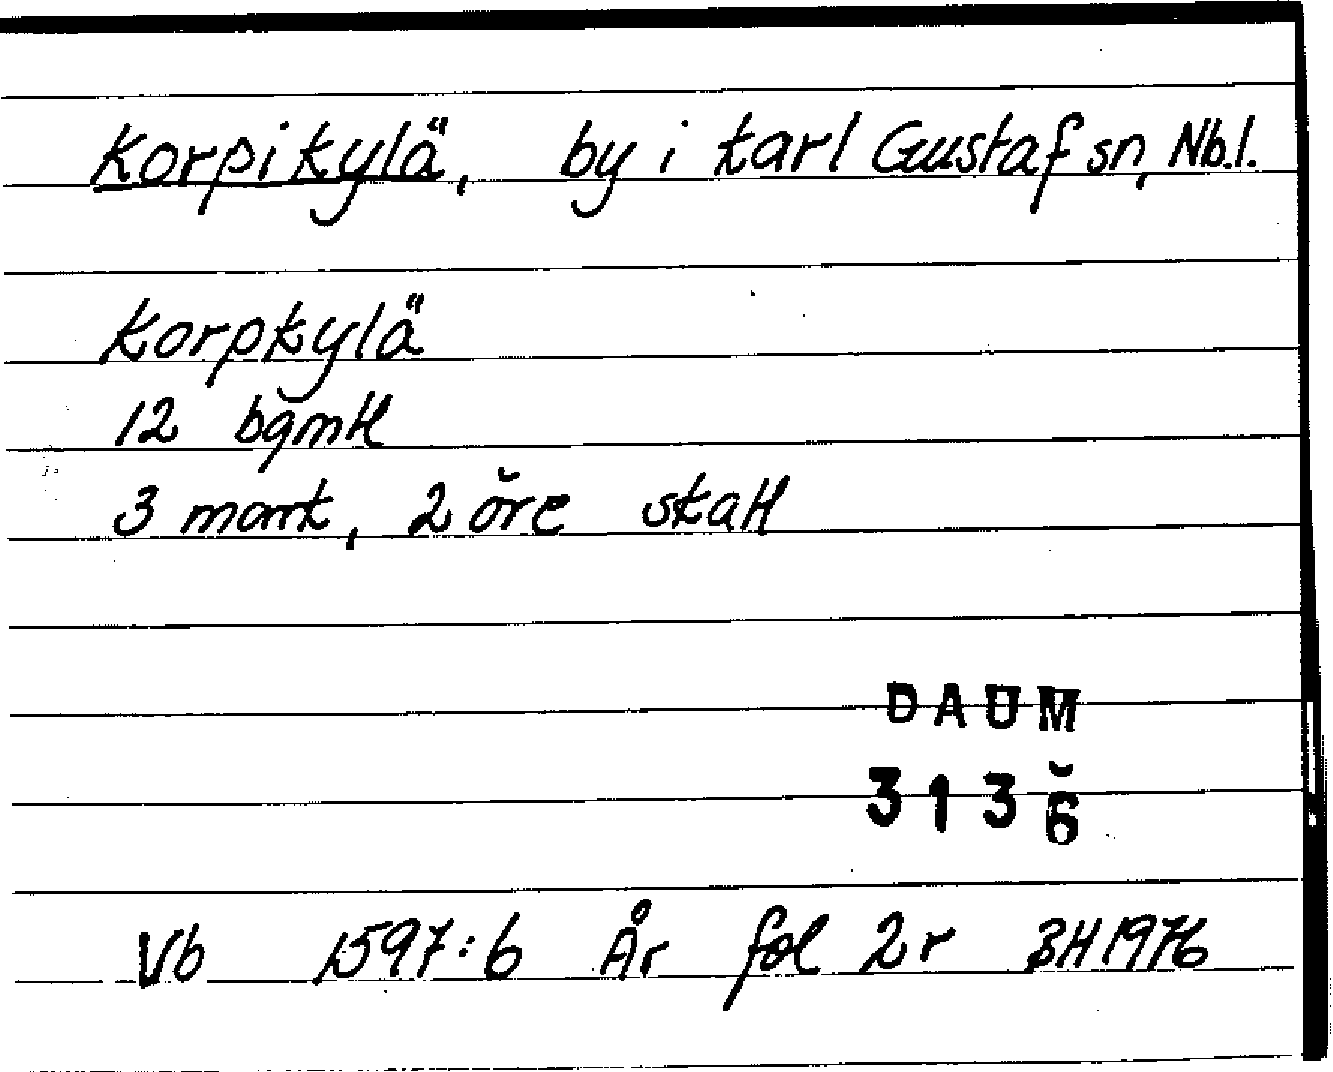 Korpikylä, by i Karl Gustaf sn, Nb.l.
Korpkylä
12 bgmtl
3 mark, 2 öre skatt
DAUM
3136
Vb 1597:6 År fol 2r BH 1976